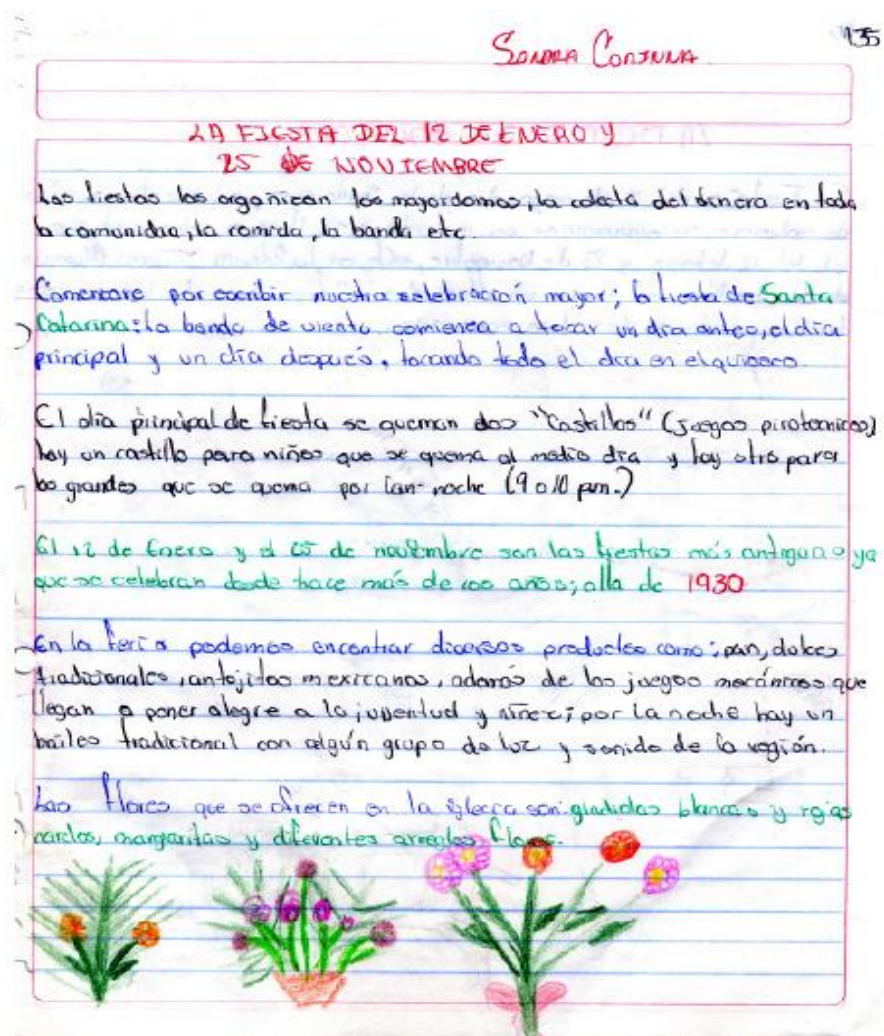 135
SANDRA CORINNA
LA FIESTA DEL 12 DE ENERO Y
25 DE NOVIEMBRE
Las fiestas las organican los mayordomos, la colecta del dinero en toda
la comunidad, la comida, la banda etc.
Comenzare por escribir nuestra selebración mayor; la fiesta de Santa
Catarina: La banda de viento comienza a tocar un dia antes, el dia
principal y un dia después, tocando todo el dia en el quiosco.
El dia principal de fiesta se queman dos "Castillos" (Juegos pirotecnicos)
hay un castillo para niños que se quema al medio dia y hay otro para
los grandes que se quema por la noche (9 o 10 p.m.)
El 12 de Enero y el 25 de noviembre son las fiestas más antiguas ya
que se celebran desde hace más de 100 años; alla de 1930
En la feria podemos encontrar diversos productos como: pan, dulces
tradicionales, antojitos mexicanos, además de los juegos mecánicos que
llegan a poner alegre a la juventud y niñez; por la noche hay un
bailes tradicional con algún grupo de luz y sonido de la región.
Las flores que se ofrecen en la iglecia son: gladiolas blancas y rojas
nardos, margaritas y diferentes arreglos